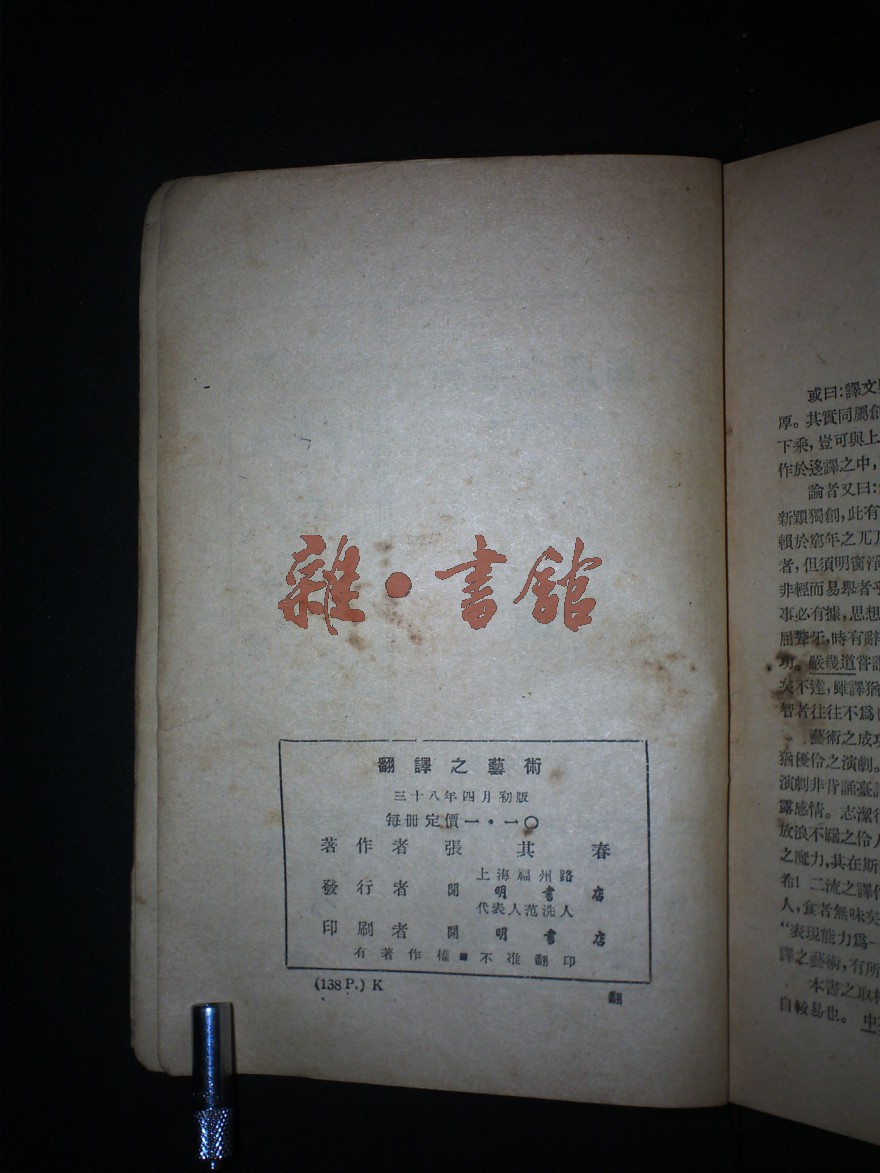 雜·書舘
翻譯之藝術
三十八年四月初版
每冊定價一·一〇
著作者 張其春
上海福州路
發行者 開明書店
代表人范洗人
印刷者 開明書店
有著作權■不准翻印
(138 P.) K
翻
或曰:譯文
厚。其實同屬創
下乘,豈可與上
作於迻譯之中,
論者又曰:
新穎獨創,此有
賴於窮年之兀兀
者,但須明窗淨
非輕而易舉者乎
事必有據,思想
屈聱牙,時有辭
功。嚴幾道嘗謂
矣不達,雖譯猶
智者往往不爲也
藝術之成功
猶優伶之演劇。
演劇非背誦臺詞
露感情。志潔行
放浪不羈之伶人
之魔力,其在斯
希!二流之譯作
人,食者無味矣
“表現能力爲一
譯之藝術,有所
本書之取材
自較易也。中